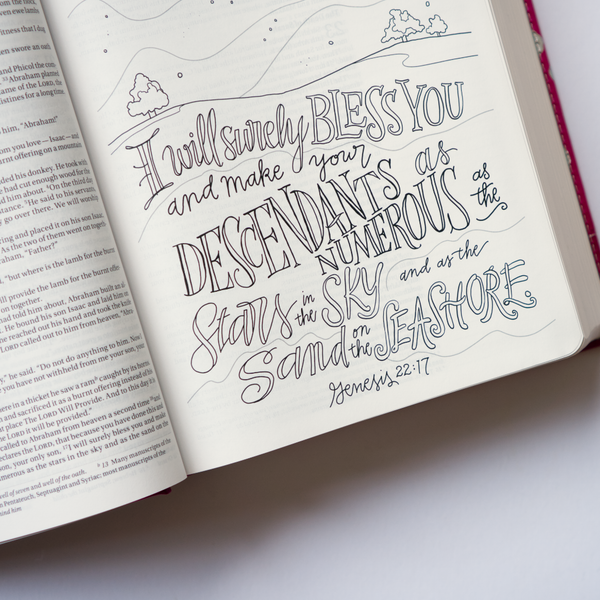 ewe lambs
itness that I dug
en swore an oath
and Phicol the com-
Abraham planted
ame of the LORD, the
istines for a long time.
him, "Abraham!"
om you love—Isaac—and
urnt offering on a mountain
ded his donkey. He took with
e had cut enough wood for the
ld him about. "On the third day
stance. "He said to his servants,
y go over there. We will worship
ring and placed it on his son Isaac,
As the two of them went on together,
Abraham, "Father?"
"but where is the lamb for the burnt
ill provide the lamb for the burnt offer
on together.
had told him about, Abraham built an
He bound his son Isaac and laid him
e reached out his hand and took the knife
Lord called out to him from heaven,
he said. "Do not do anything to him. Now
you have not withheld from me your son, your
here in a thicket he saw a ram caught by its horns
and sacrificed it as a burnt offering instead of his
t place The LORD Will Provide. And to this day it
e LORD it will be provided."
called to Abraham from heaven a second time and
eclares the LORD, that because you have done this and
son, your only son, I will surely bless you and make
merous as the stars in the sky and as the sand on the
well of seven and well of the oath. 13 Many manuscripts of the
n Pentateuch, Septuagint and Syriac; most manuscripts of the
ind him
I will surely BLESS YOU
and make your
DESCENDANTS as
NUMEROUS as the
Stars in the SKY and as the
Sand on the SEASHORE.
Genesis 22:17